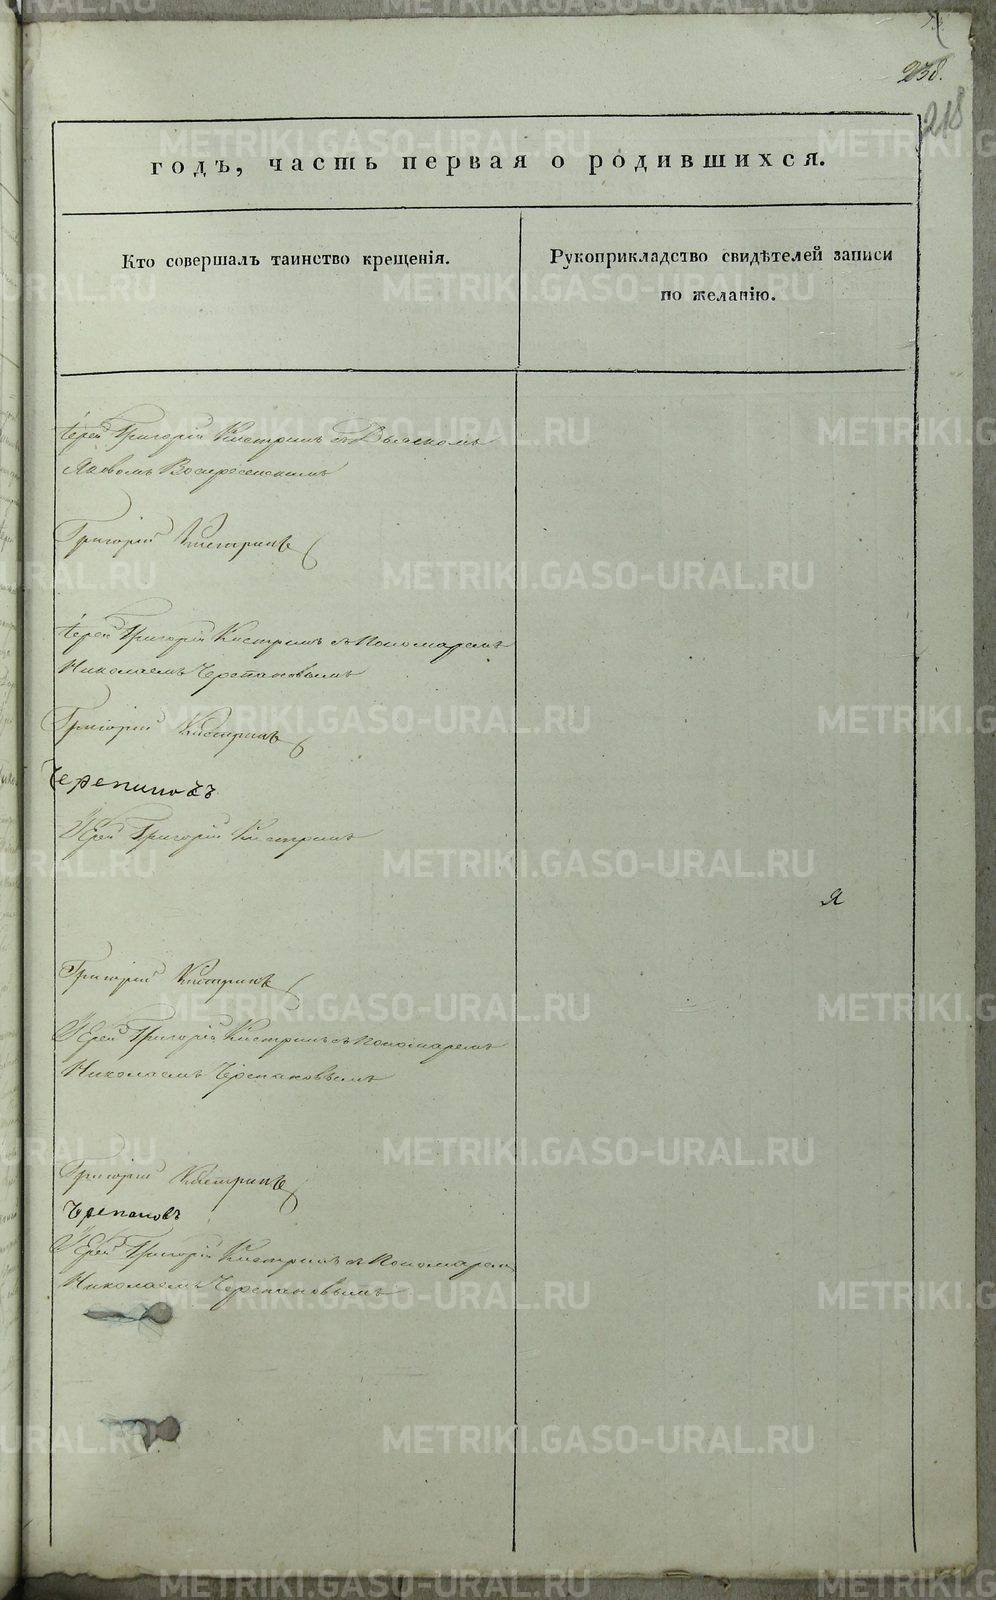 238.
218
годъ, часть первая о родившихся.
Кто совершалъ таинство крещенія.
Рукоприкладство свидѣтелей записи
по желанію.
Іерей Григорій Кистринъ съ Дьячкомъ
Яковомъ Воскресенскимъ
Григорій Кистринъ
Іерей Григорій Кистринъ съ Пономаремъ
Николаемъ Черепановымъ
Григорій Кистринъ
Черепановъ
Іерей Григорій Кистринъ
Я
Григорій Кистринъ
Іерей Григорій Кистринъ съ Пономаремъ
Николаемъ Черепановымъ
Григорій Кистринъ
Черепановъ
Іерей Григорій Кистринъ съ Пономарем
Николаемъ Черепановымъ
METRIKI.GASO-URAL.RU